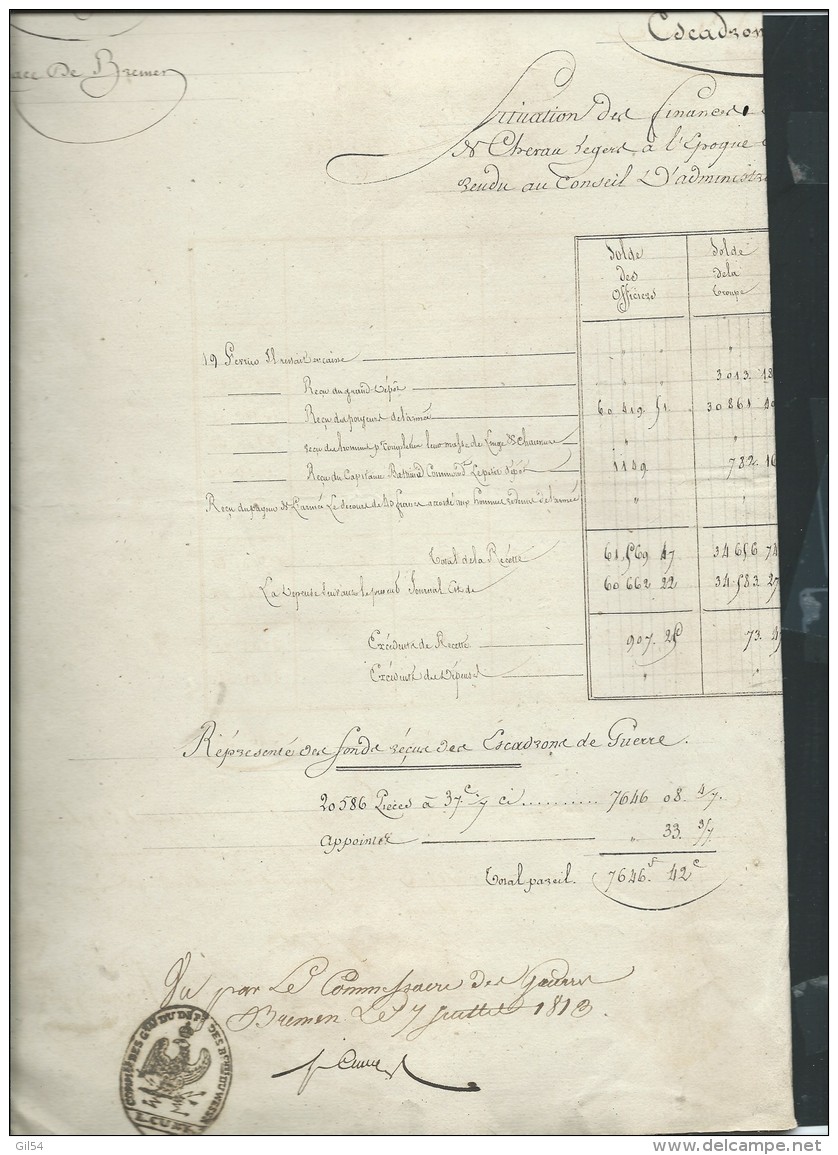 Escadron
ace De Bremen
Situation des finances
& Chevau legers à l'Epoque
rendu au Conseil D'administra
Solde des Officiers
Solde de la troupe
19 Fevrier Il restait en caisse " "
Reçu du grand dépôt " 3013. 18
Reçu des payeurs de l'armée 60 419. 51. 30 861 40
reçu des hommes p. completter leur masse de Linge & Chaussure " "
Reçu du Capitaine Command.t Le petit dépôt 1149 782. 16
Reçu du payeur de L'armée Le Secours de 40 francs accordé aux hommes revenus de l'armée " "
Total de la Recette 61.569 47 34 656 74
La Dépense Suivant le Journal Est de 60 662 22 34.583. 27
Excédents de Recette 907. 25 73. 47
Excédent de Dépenses " "
Réprésenté des fonds reçus des Escadrons de Guerre.
20 586 Pièces à 37.c 1/7 ci .......... 7646 08. 4/7.
appoint " 33. 3/7
Total pareil. 7646.f 42c
Vu par Le Commissaire des Guerres
Bremen Le 7 Juillet 1813
Gil54
www.delcampe.net